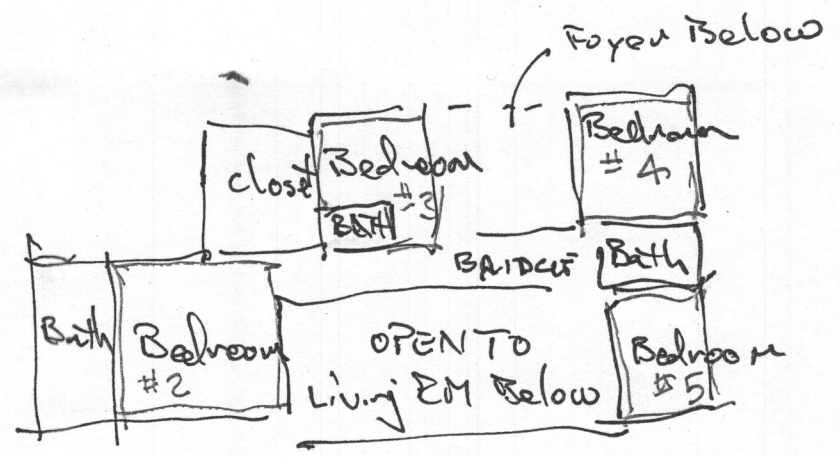 Foyer Below
Bedroom
#4
closet
Bedroom
#3
BATH
BRIDGE
Bath
Bath
Bedroom
#2
OPEN TO
Living RM Below
Bedroom
#5